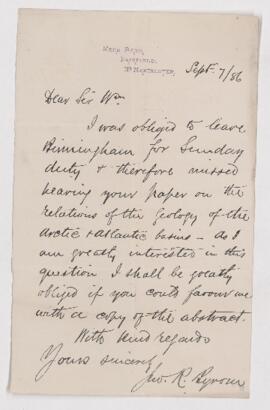 Sept. 7/86
Dear Sir Wm
I was obliged to leave
Birmingham for Sunday
duty & therefore missed
hearing your paper on the
relations of the Geology of the
Arctic & Atlantic basins - As I
am greatly interested in this
question I shall be greatly
obliged if you could favour me
with a copy of the abstract.
With kind regards
Yours sincerely
Jno. R.